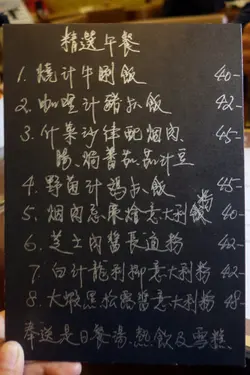 精選午餐
1. 燒汁牛脷飯 40-
2. 咖喱汁豬扒飯 42-
3. 什菜沙律配烟肉、 45-
腸、焗薯茄茄汁豆
4. 野菌汁鸡扒飯 45-
5. 烟肉忌廉燴意大利飯 40
6. 芝士肉醬長通粉 42-
7. 白汁龍利柳意大利粉 42-
8. 大蝦黑松露醬意大利粉 48-
奉送是日餐湯、熱飲及雪糕、